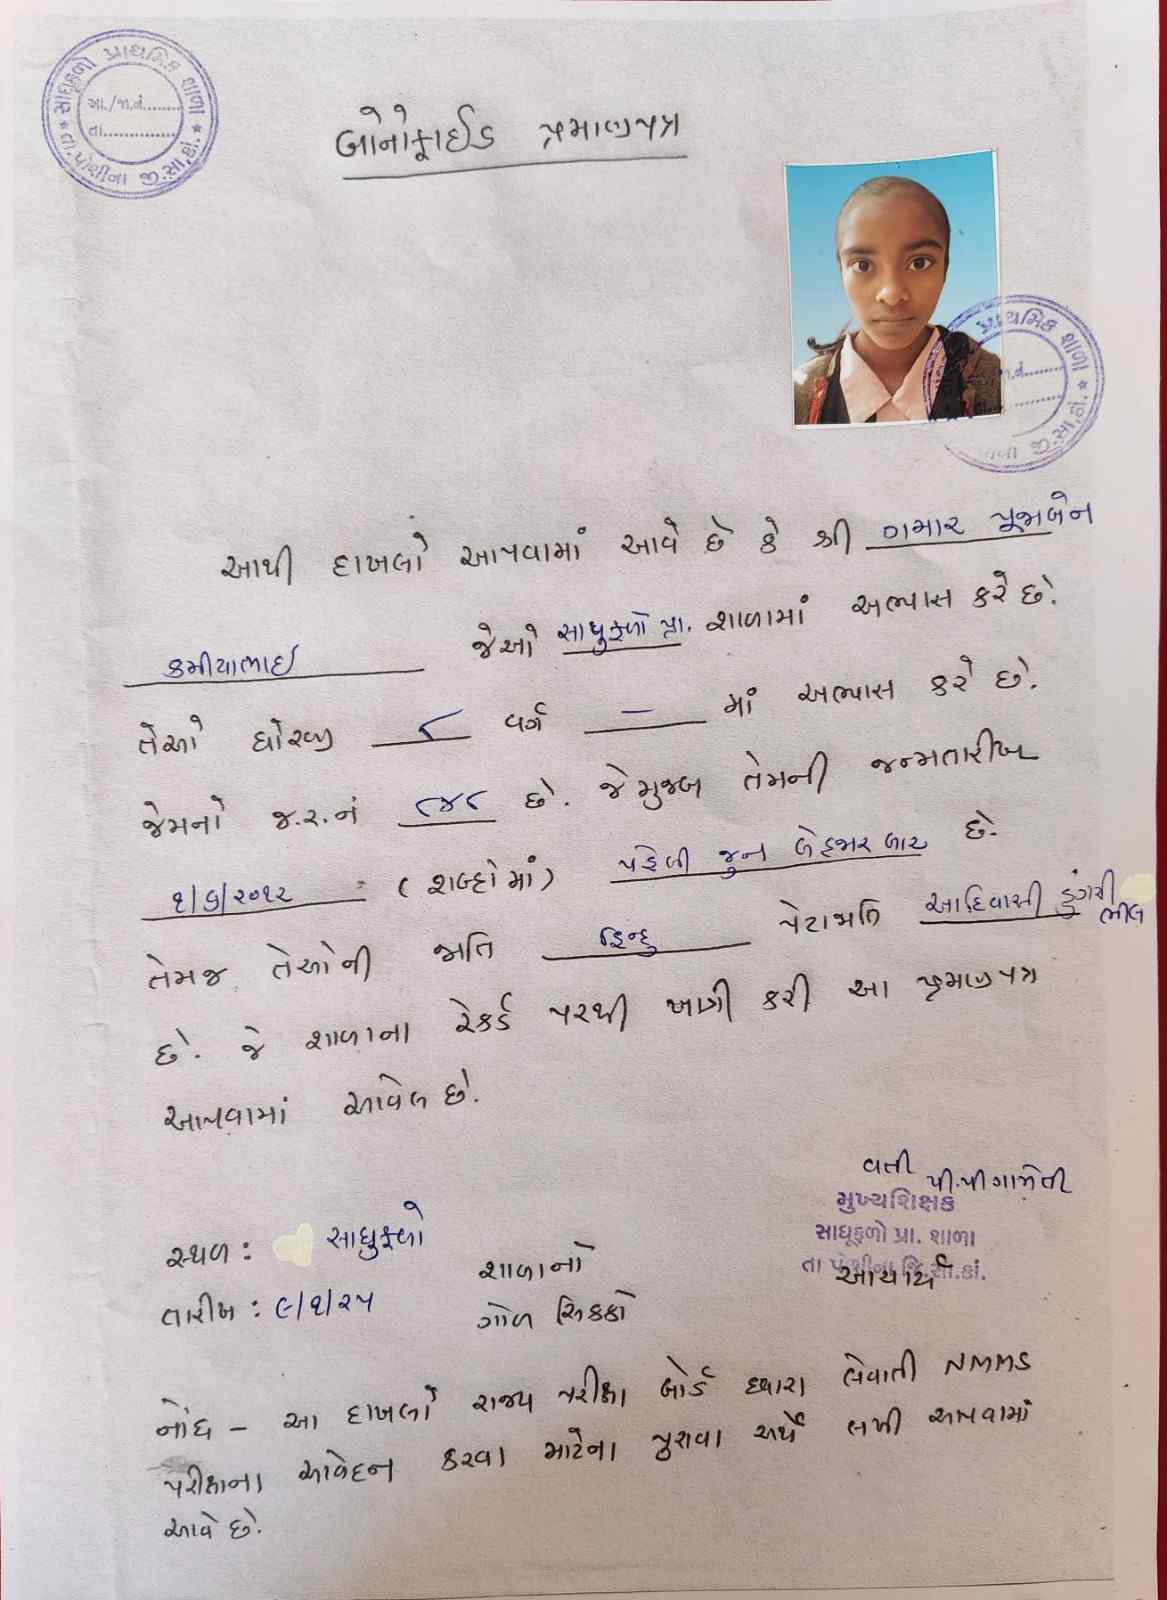 સાધુફળો પ્રાથમિક શાળા
આ./જા.નં.........
તા...............
* તા.પોશીના જી.સા.કાં. *
બોનોફાઈડ પ્રમાણપત્ર
પ્રાથમિક શાળા
જા.નં.........
જી.સા.કાં. *
આથી દાખલો આપવામાં આવે છે કે શ્રી ગમાર પૂજાબેન
કમીયાભાઈ જેઓ સાધુફળો પ્રા. શાળામાં અભ્યાસ કરે છે.
તેઓ ધોરણ ૮ વર્ગ — માં અભ્યાસ કરે છે.
જેમનો જ.ર.નં ૮૪૮ છે. જે મુજબ તેમની જન્મતારીખ
૧/૬/૨૦૧૨ (શબ્દોમાં) પહેલી જુન બેહજાર બાર છે.
તેમજ તેઓની જાતિ હિન્દુ પેટાજાતિ આદિવાસી ડુંગરી ભીલ
છે. જે શાળાના રેકર્ડ પરથી ખાત્રી કરી આ પ્રમાણપત્ર
આપવામાં આવેલ છે.
વતી પી.પી ગામેતી
મુખ્યશિક્ષક
સાધુફળો પ્રા. શાળા
તા પોશીના જિ.સા.કાં.
આચાર્ય
સ્થળ : સાધુફળો
શાળાનો
તારીખ : ૯/૧/૨૫
ગોળ સિક્કો
નોંધ – આ દાખલો રાજ્ય પરીક્ષા બોર્ડ દ્વારા લેવાતી NMMS
પરીક્ષાના આવેદન કરવા માટેના પુરાવા અર્થે લખી આપવામાં
આવે છે.